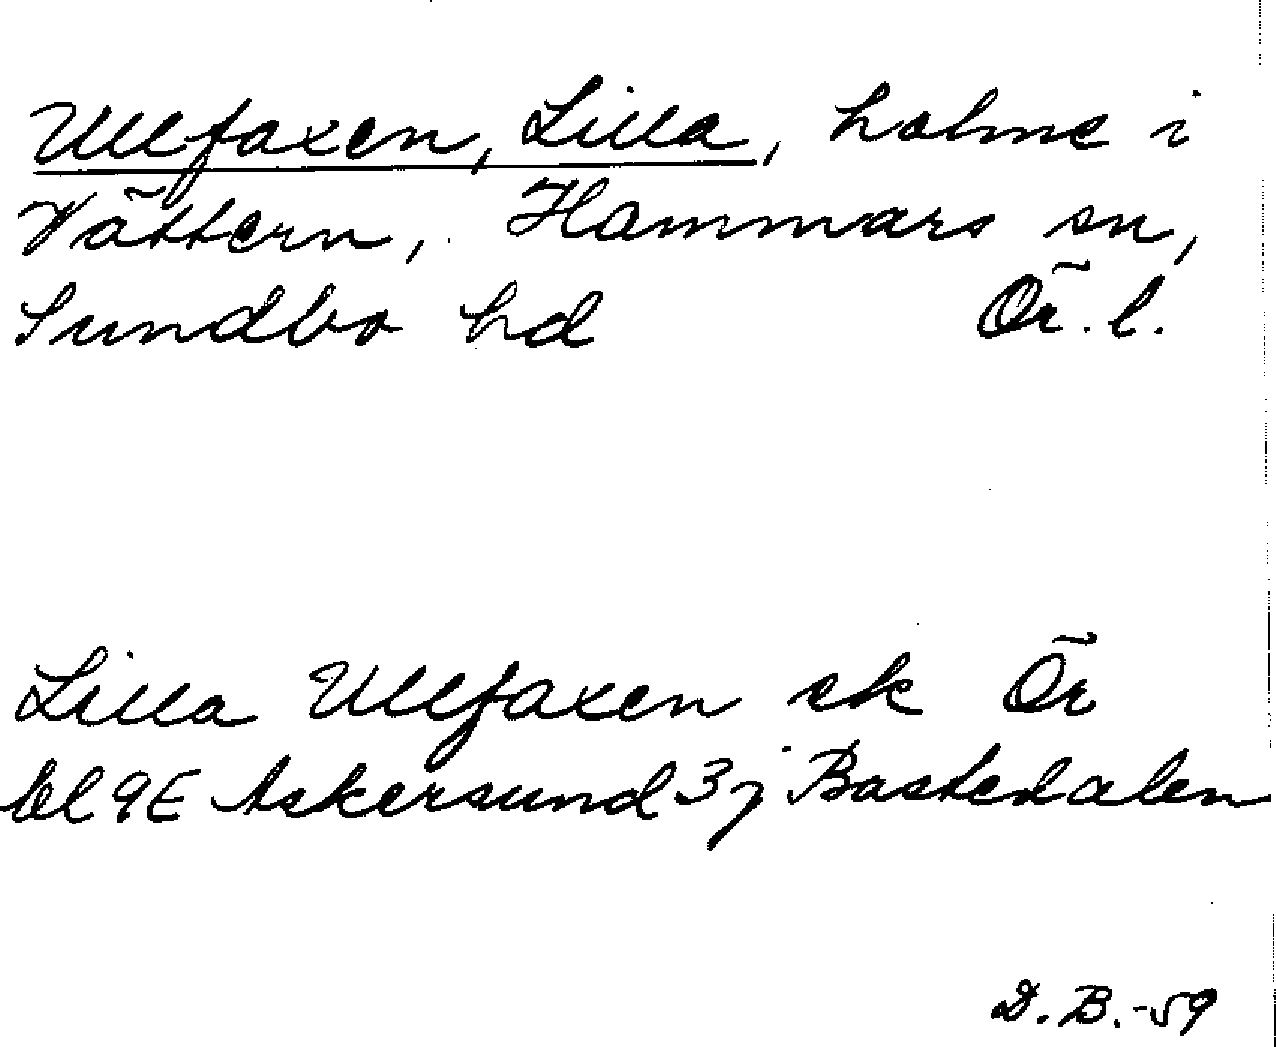 Ullfaxen, Lilla, holme i
Vättern, Hammars sn,
Sundbo hd Ör. l.
Lilla Ullfaxen ek Ör
bl 9E Askersund 3j Bastedalen
D. B. -59